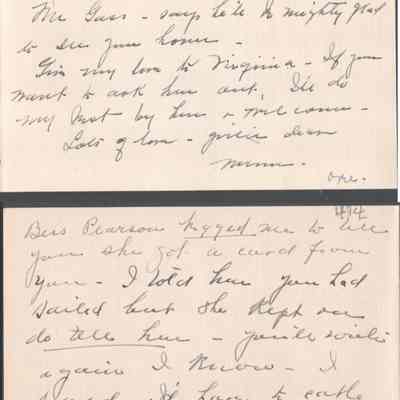 Mr Gass - says he'll be mighty glad
to see you home -
Give my love to Virginia - If you
want to ask her out, I'll do
my best by her & welcome -
Lots of love - girlie dear
over.
414
Bess Pearson begged me to tell
you she got a card from
you - I told her you had
sailed but she kept on
do tell her - you'll write
again I know - I
I'd have to cable